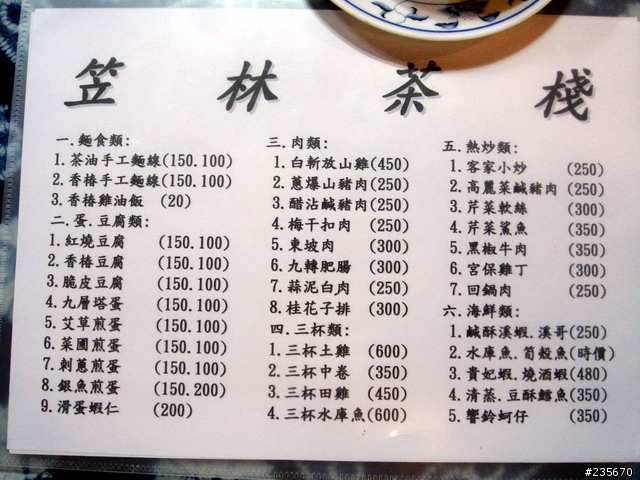 笠林茶棧
一.麵食類:
1.茶油手工麵線(150.100)
2.香椿手工麵線(150.100)
3.香椿雞油飯 (20)
二.蛋.豆腐類:
1.紅燒豆腐 (150.100)
2.香椿豆腐 (150.100)
3.脆皮豆腐 (150.100)
4.九層塔蛋 (150.100)
5.艾草煎蛋 (150.100)
6.菜圃煎蛋 (150.100)
7.刺蔥煎蛋 (150.100)
8.銀魚煎蛋 (150.200)
9.滑蛋蝦仁 (200)
三.肉類:
1.白斬放山雞(450)
2.蔥爆山豬肉(250)
3.醋沾鹹豬肉(250)
4.梅干扣肉 (250)
5.東坡肉 (300)
6.九轉肥腸 (300)
7.蒜泥白肉 (250)
8.桂花子排 (300)
四.三杯類:
1.三杯土雞 (600)
2.三杯中卷 (350)
3.三杯田雞 (450)
4.三杯水庫魚(600)
五.熱炒類:
1.客家小炒 (250)
2.高麗菜鹹豬肉 (250)
3.芹菜軟絲 (300)
4.芹菜鯊魚 (350)
5.黑椒牛肉 (350)
6.宮保雞丁 (300)
7.回鍋肉 (250)
六.海鮮類:
1.鹹酥溪蝦.溪哥(250)
2.水庫魚.筍殼魚(時價)
3.貴妃蝦.燒酒蝦(480)
4.清蒸.豆酥鱈魚(350)
5.響鈴蚵仔 (350)
#235670